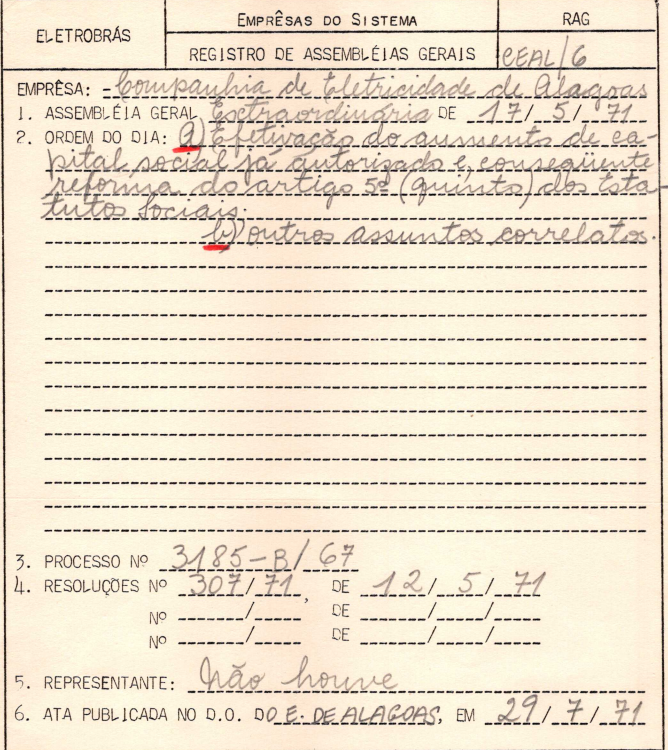 ELETROBRÁS
EMPRÊSAS DO SISTEMA
RAG
REGISTRO DE ASSEMBLÉIAS GERAIS
CEAL/6
EMPRÊSA: Companhia de Eletricidade de Alagoas
1. ASSEMBLÉIA GERAL Extraordinária DE 17/5/71
2. ORDEM DO DIA: a) Efetivação do aumento de ca-
pital social já autorizado e, conseqüente
reforma do artigo 5º (quinto) dos Esta-
tutos Sociais.
b) outros assuntos correlatos.
3. PROCESSO Nº 3185-B/67
4. RESOLUÇÕES Nº 307/71, DE 12/5/71
Nº / DE / /
Nº / DE / /
5. REPRESENTANTE: Não houve
6. ATA PUBLICADA NO D.O. DO E. DE ALAGOAS, EM 29/7/71